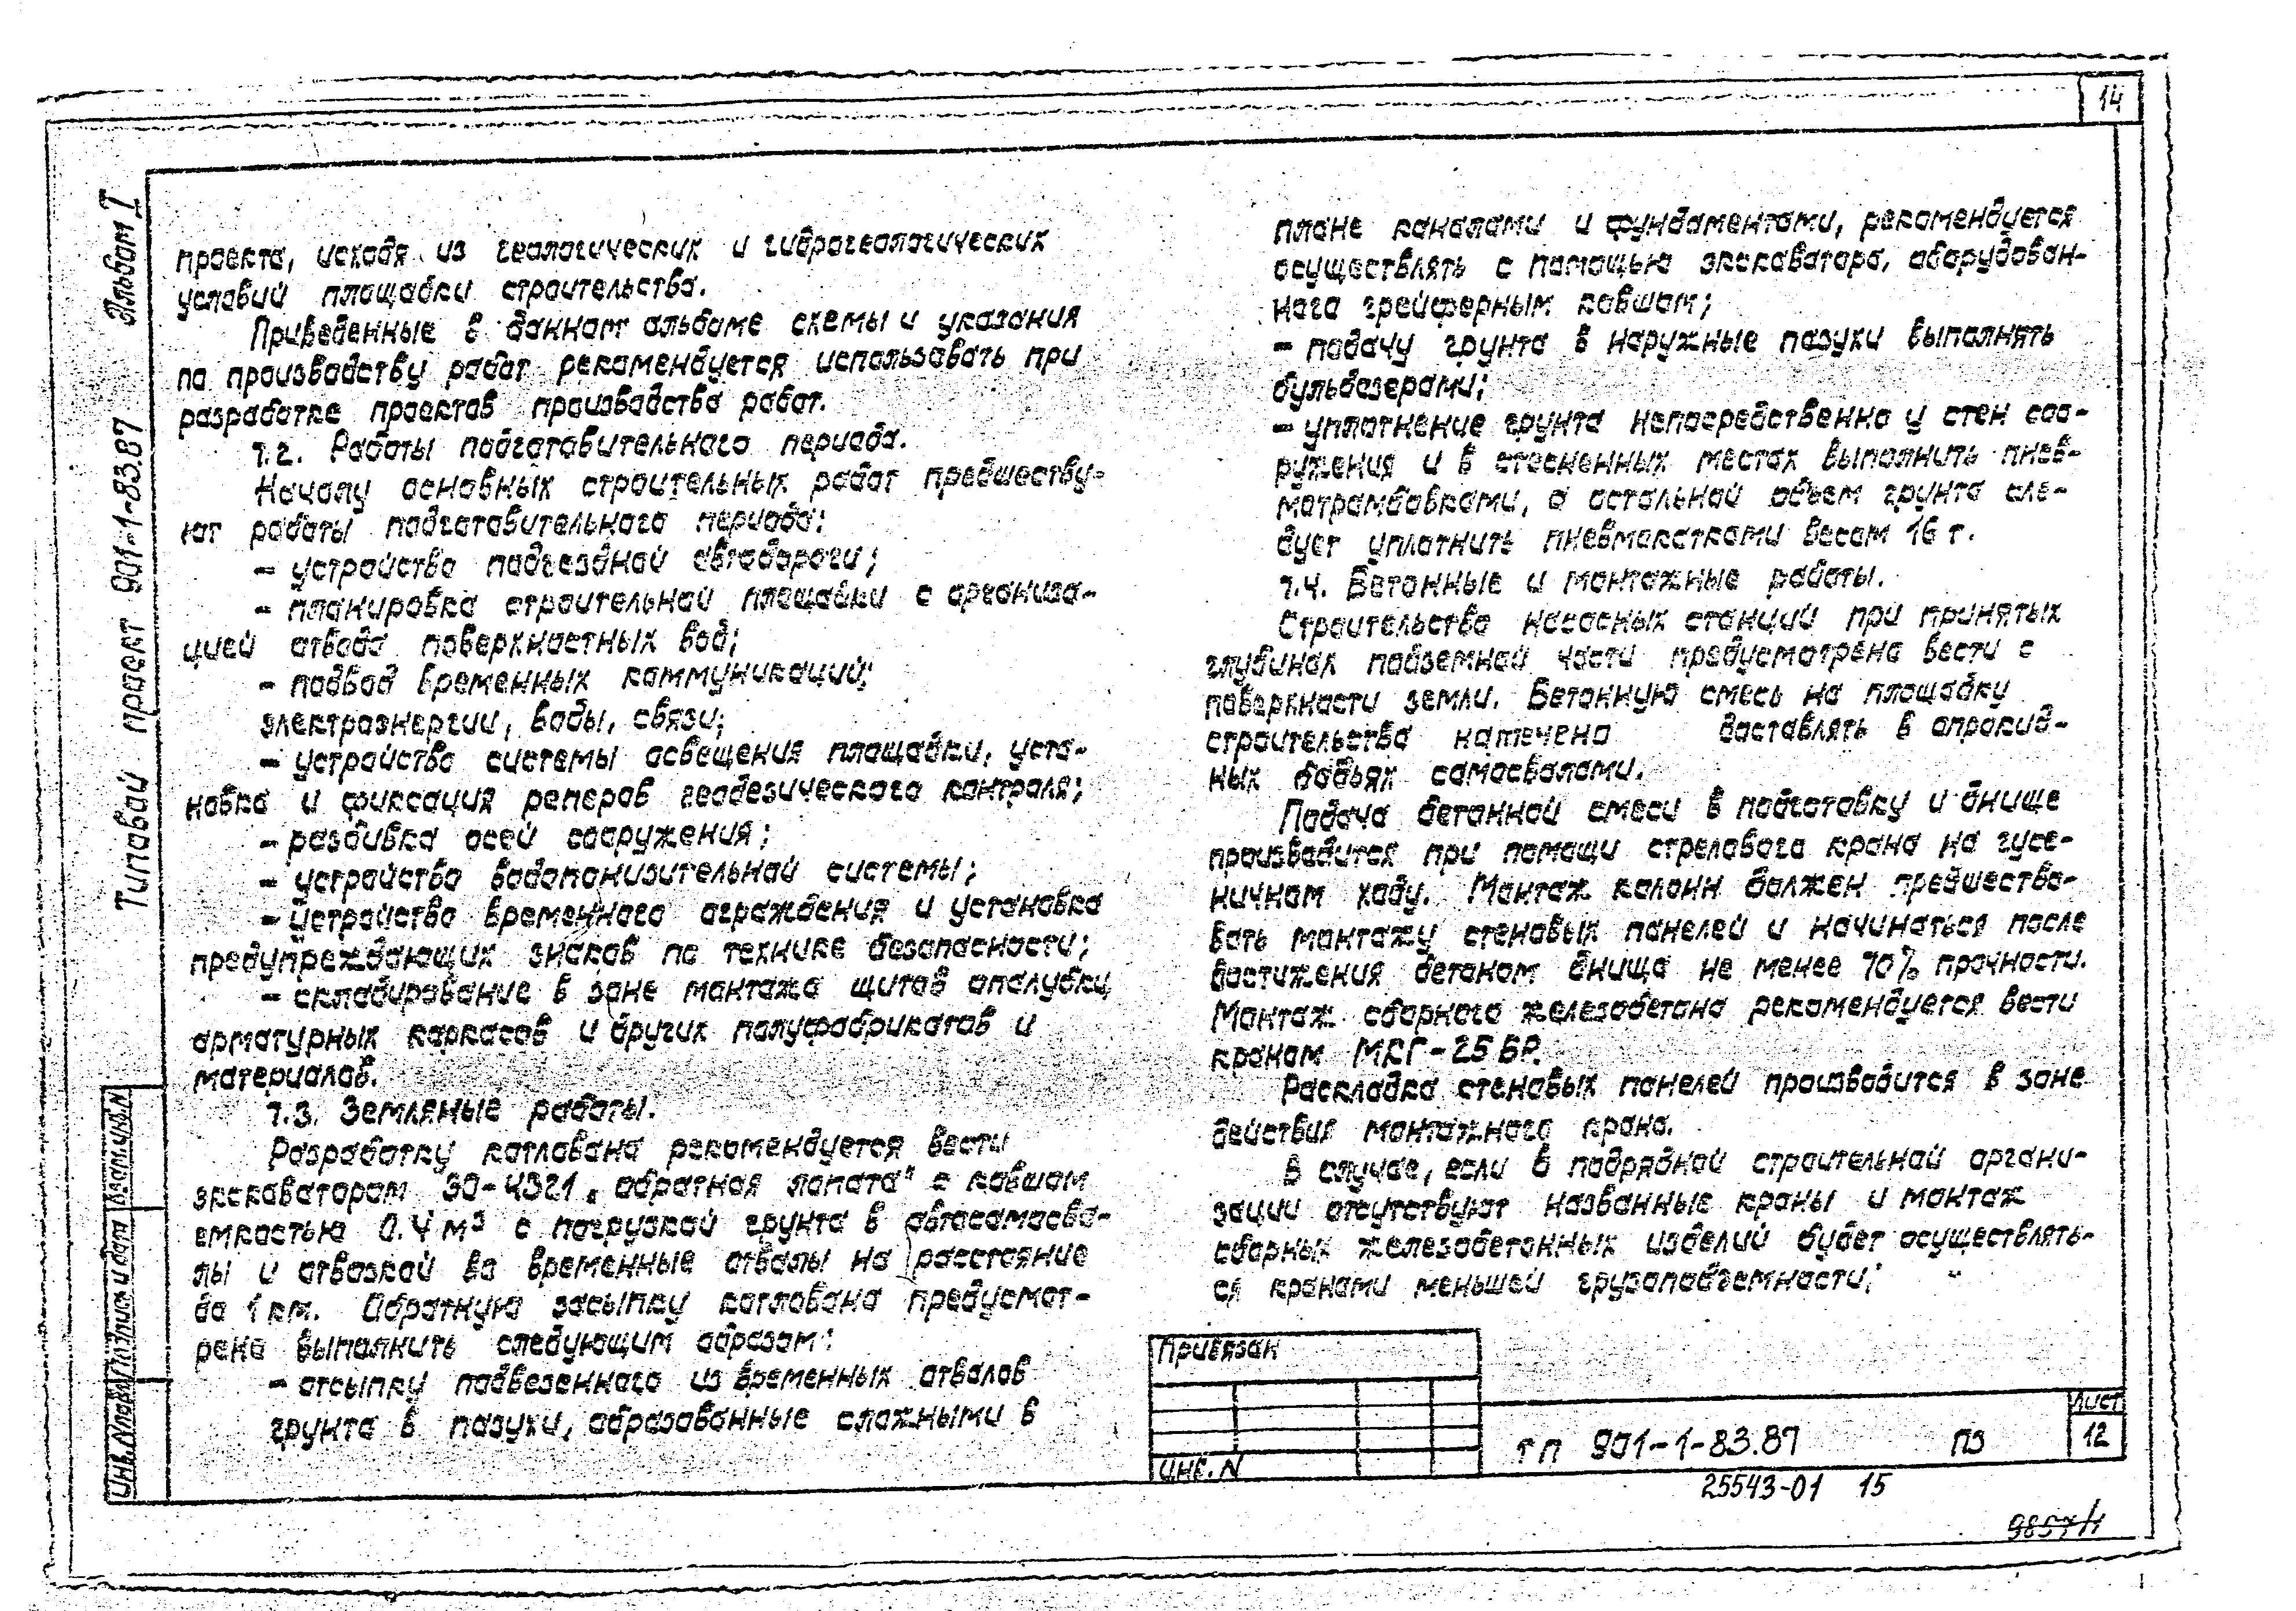 14
Альбом I
Типовой проект 901-1-83.87
проекта, исходя из геологических и гидрогеологических
условий площадки строительства.
Приведенные в данном альбоме схемы и указания
по производству работ рекомендуется использовать при
разработке проектов производства работ.
7.2. Работы подготовительного периода.
Началу основных строительных работ предшеству-
ют работы подготовительного периода:
- устройство подъездной автодороги;
- планировка строительной площадки с организа-
цией отвода поверхностных вод;
- подвод временных коммуникаций;
электроэнергии, воды, связи;
- устройство системы освещения площадки, уста-
новка и фиксация реперов геодезического контроля;
- разбивка осей сооружения;
- устройство водопонизительной системы;
- устройство временного ограждения и установка
предупреждающих знаков по технике безопасности;
- складирование в зоне монтажа щитов опалубки,
арматурных каркасов и других полуфабрикатов и
материалов.
7.3. Земляные работы.
Разработку котлована рекомендуется вести
экскаватором ЭО-4321 „обратная лопата" с ковшом
емкостью 0.4 м³ с погрузкой грунта в автосамосва-
лы и отвозкой во временные отвалы на расстояние
до 1 км. Обратную засыпку котлована предусмот-
рено выполнить следующим образом:
- отсыпку подвезенного из временных отвалов
грунта в пазухи, образованные сложными в
плане каналами и фундаментами, рекомендуется
осуществлять с помощью экскаватора, оборудован-
ного грейферным ковшом;
- подачу грунта в наружные пазухи выполнять
бульдозерами;
- уплотнение грунта непосредственно у стен соо-
ружения и в стесненных местах выполнить пнев-
мотрамбовками, а остальной объем грунта сле-
дует уплотнить пневмокатками весом 16 т.
7.4. Бетонные и монтажные работы.
Строительство насосных станций при принятых
глубинах подземной части предусмотрено вести с
поверхности земли. Бетонную смесь на площадку
строительства намечено доставлять в опрокид-
ных бадьях самосвалами.
Подача бетонной смеси в подготовку и днище
производится при помощи стрелового крана на гусе-
ничном ходу. Монтаж колонн должен предшество-
вать монтажу стеновых панелей и начинаться после
достижения бетоном днища не менее 70% прочности.
Монтаж сборного железобетона рекомендуется вести
краном МКГ-25 БР.
Раскладка стеновых панелей производится в зоне
действия монтажного крана.
В случае, если в подрядной строительной органи-
зации отсутствуют названные краны и монтаж
сборных железобетонных изделий будет осуществлять-
ся кранами меньшей грузоподъемности;
Инв. № подл. Подпись и дата Взам. инв. N
Привязан
Инв. N
ТП 901-1-83.87 ПЗ
Лист
12
25543-01 15
9857/1